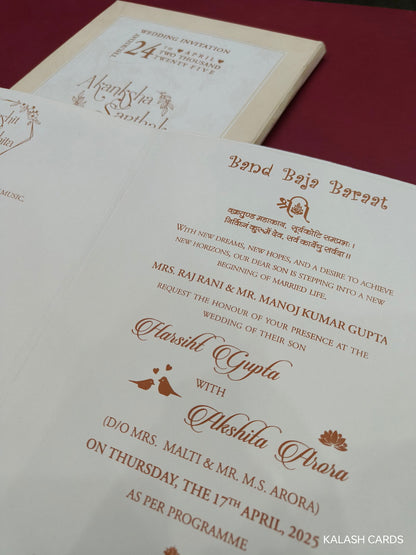 WEDDING INVITATION
THURSDAY
24 TH ♥ APRIL ♥
TWO THOUSAND
TWENTY FIVE
Akanksha
Sarthak
MUSIC.
Band Baja Baraat
श्री
वक्रतुण्ड महाकाय, सूर्यकोटि समप्रभः।
निर्विघ्नं कुरूमे देव, सर्व कार्येषु सर्वदा॥
WITH NEW DREAMS, NEW HOPES, AND A DESIRE TO ACHIEVE
NEW HORIZONS, OUR DEAR SON IS STEPPING INTO A NEW
BEGINNING OF MARRIED LIFE.
MRS. RAJ RANI & MR. MANOJ KUMAR GUPTA
REQUEST THE HONOUR OF YOUR PRESENCE AT THE
WEDDING OF THEIR SON
Harshit Gupta
WITH
Akshita Arora
(D/O MRS. MALTI & MR. M.S. ARORA)
ON THURSDAY, THE 17TH APRIL, 2025
AS PER PROGRAMME
KALASH CARDS